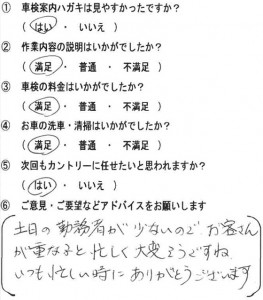 ① 車検案内ハガキは見やすかったですか?
( はい ・ いいえ )
② 作業内容の説明はいかがでしたか?
( 満足 ・ 普通 ・ 不満足 )
③ 車検の料金はいかがでしたか?
( 満足 ・ 普通 ・ 不満足 )
④ お車の洗車・清掃はいかがでしたか?
( 満足 ・ 普通 ・ 不満足 )
⑤ 次回もカントリーに任せたいと思われますか?
( はい ・ いいえ )
⑥ ご意見・ご要望などアドバイスをお願いします
土日の勤務者が少ないので、お客さん
が重なると忙しく大変そうですね
いつも忙しい時にありがとうございます